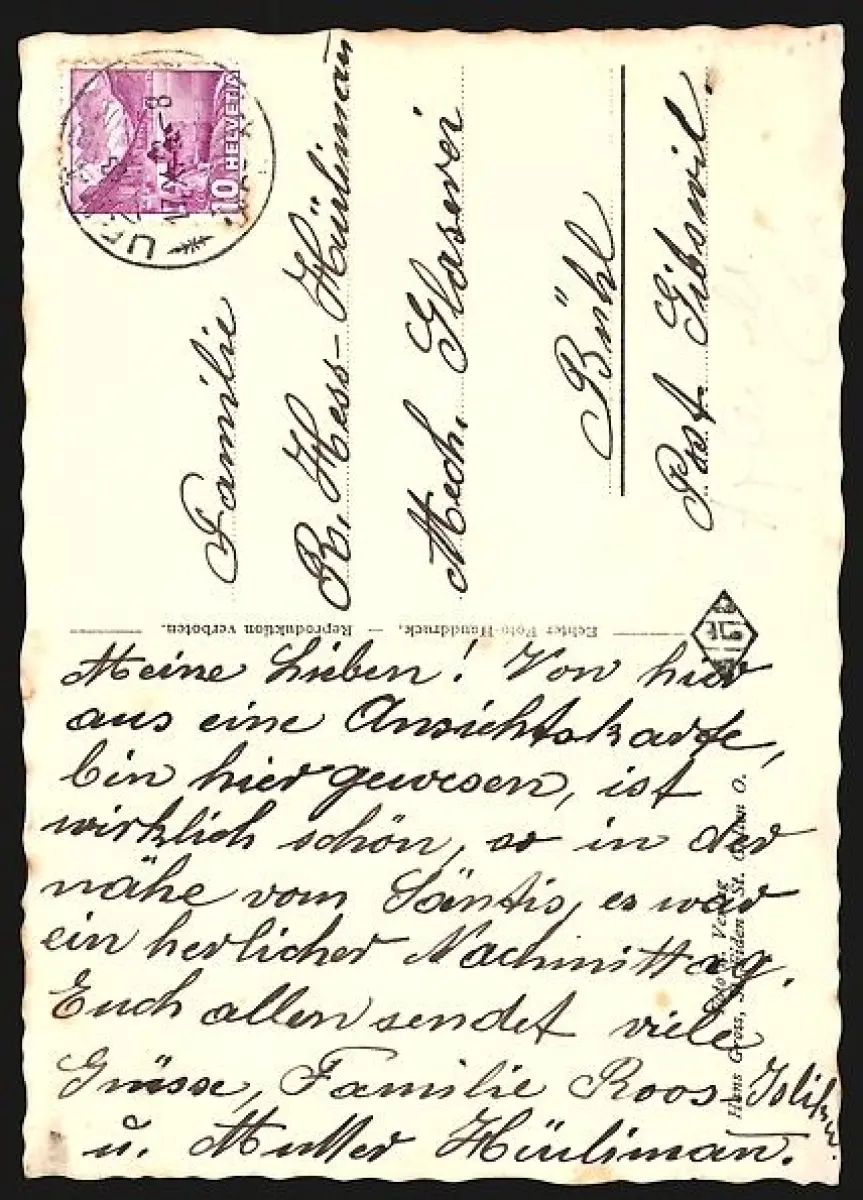 HELVETIA
10
Familie
R. Hess-Hürliman̄
Mech. Glaserei
Bühl
Post. Gibswil.
Echter Foto-Handdruck. — Reproduktion verboten.
Meine Lieben! Von hier
aus eine Ansichtskarte,
bin hier gewesen, ist
wirklich schön, so in der
nähe vom Säntis, es war
ein herlicher Nachmittag.
Euch allen sendet viele
Grüsse, Familie Roos-
u. Mutter Hürliman̄.
Foto u. Verlag
Hans Gross, St. Gallen O.